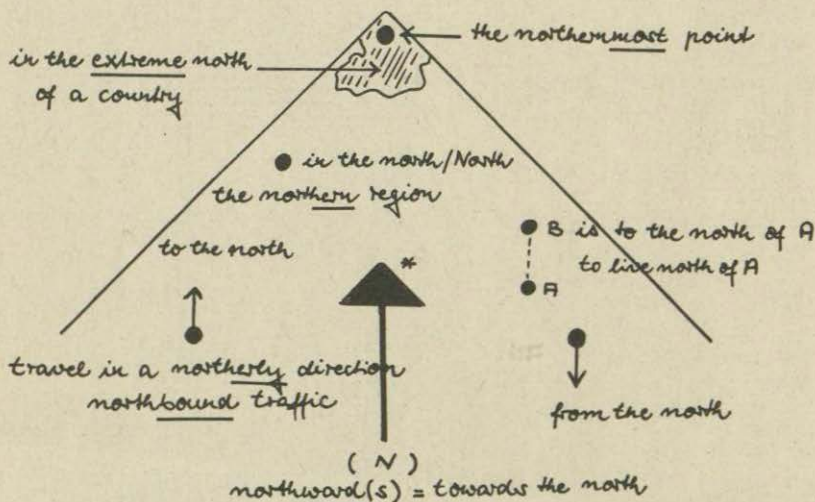 the northernmost point
in the extreme north
of a country
in the north/North
the northern region
to the north
B is to the north of A
to live north of A
A
*
travel in a northerly direction
northbound traffic
from the north
(N)
northward(s) = towards the north